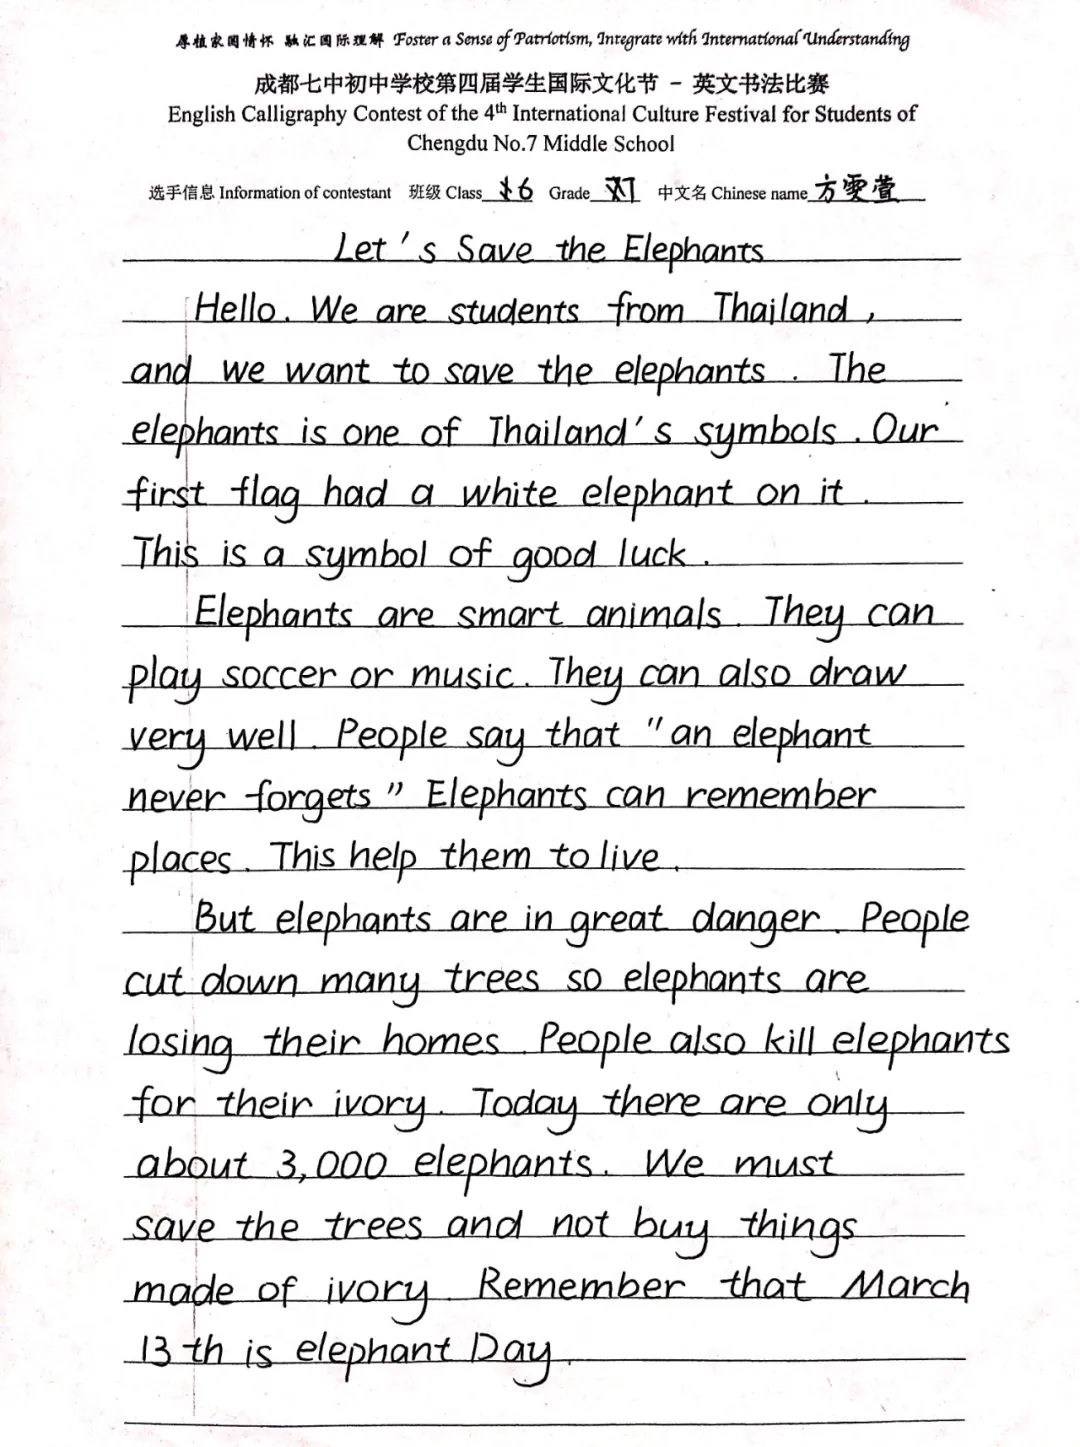 厚植家国情怀 融汇国际理解 Foster a Sense of Patriotism, Integrate with International Understanding
成都七中初中学校第四届学生国际文化节 - 英文书法比赛
English Calligraphy Contest of the 4th International Culture Festival for Students of
Chengdu No.7 Middle School
选手信息 Information of contestant 班级 Class 6 Grade 中文名 Chinese name 方雯萱
Let's Save the Elephants
Hello. We are students from Thailand,
and we want to save the elephants. The
elephants is one of Thailand's symbols. Our
first flag had a white elephant on it.
This is a symbol of good luck.
Elephants are smart animals. They can
play soccer or music. They can also draw
very well. People say that "an elephant
never forgets" Elephants can remember
places. This help them to live.
But elephants are in great danger. People
cut down many trees so elephants are
losing their homes. People also kill elephants
for their ivory. Today there are only
about 3,000 elephants. We must
save the trees and not buy things
made of ivory. Remember that March
13 th is elephant Day.